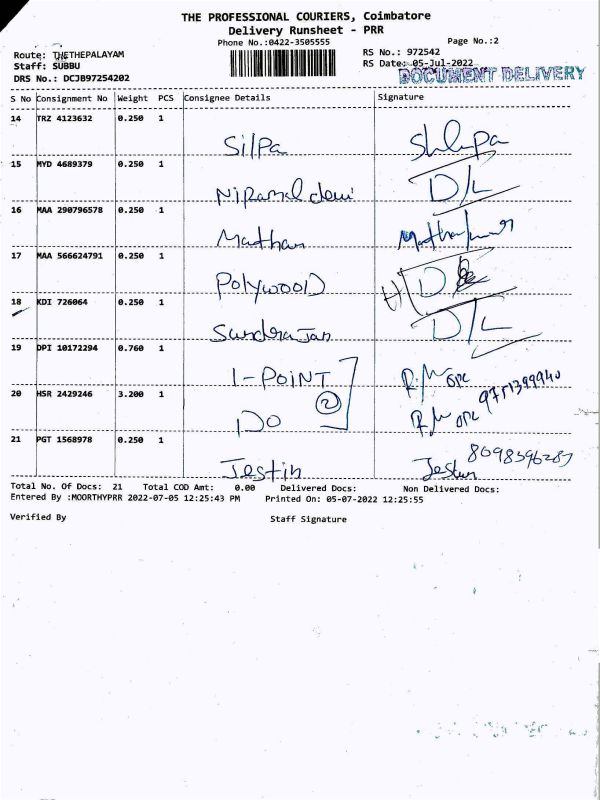 THE PROFESSIONAL COURIERS, Coimbatore
Delivery Runsheet - PRR
Phone No.:0422-3505555
Page No.:2
Route: THETHEPALAYAM
RS No.: 972542
Staff: SUBBU
RS Date: 05-Jul-2022
DRS No.: DCJB97254202
DOCUMENT DELIVERY
S No Consignment No Weight PCS Consignee Details Signature
14 TRZ 4123632 0.250 1
Silpa Shilpa
15 MYD 4689379 0.250 1
Niramal devi D/L
16 MAA 290796578 0.250 1
Madhan
17 MAA 566624791 0.250 1
Polywood
18 KDI 726064 0.250 1
Sundra Jan D/L
19 DPI 10172294 0.760 1
I-POINT
20 HSR 2429246 3.200 1
DO 2
21 PGT 1568978 0.250 1
Jestin
Total No. Of Docs: 21 Total COD Amt: 0.00 Delivered Docs: Non Delivered Docs:
Entered By :MOORTHYPRR 2022-07-05 12:25:43 PM Printed On: 05-07-2022 12:25:55
Verified By Staff Signature